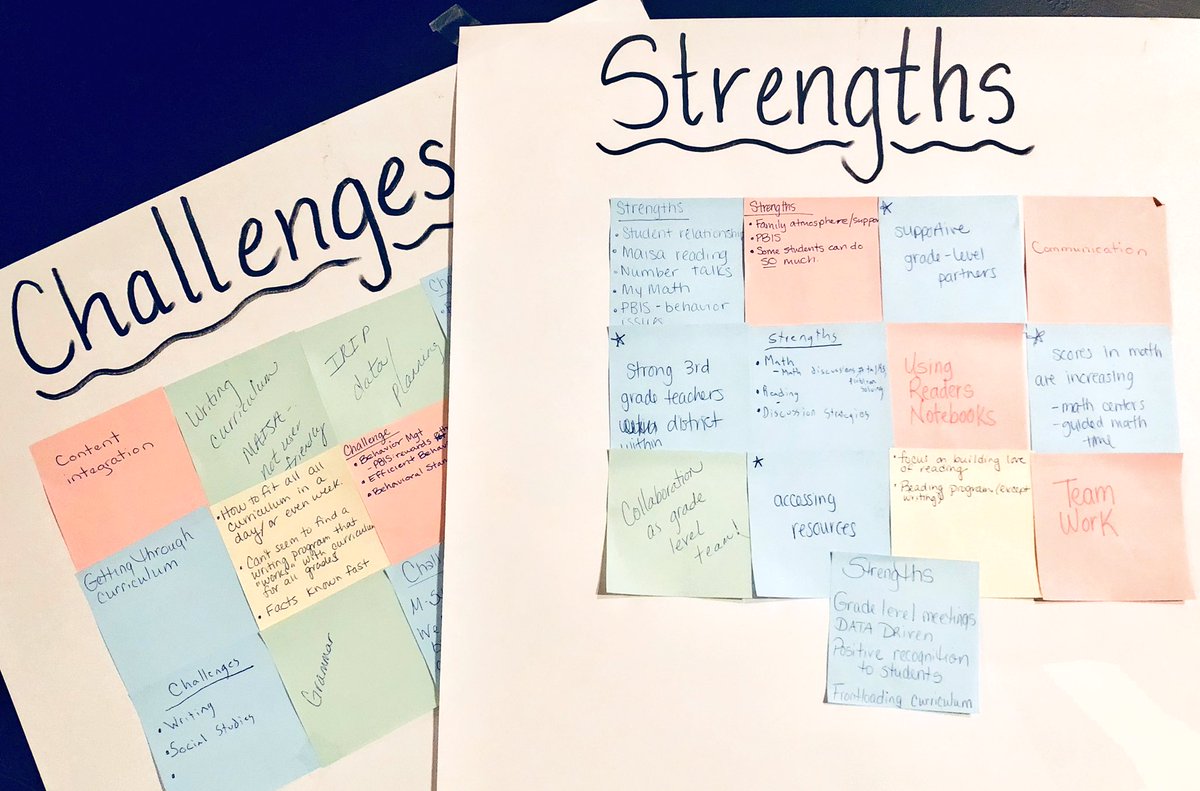 Challenges
Content
integration
Writing
curriculum
MAISA--
not user
friendly
IRIP
data/
planning
Getting through
curriculum
• How to fit all
curriculum in a
day/or even week.
• Can't seem to find a
writing program that
"works" with curriculum
for all grades
• Facts known fast
Challenge
• Behavior Mgt
PBIS rewards
• Efficient Behav
• Behavioral Stan
Challenges
• Writing
• Social Studies
•
Grammar
Chall
M-S
We
Strengths
Strengths
• Student relationship
• Maisa reading
• Number talks
• My Math
• PBIS - behavior
issues
Strengths
• Family atmosphere/suppor
• PBIS
• Some students can do
SO much.
* supportive
grade-level
partners
Communication
* Strong 3rd
grade teachers
district
within
Strengths
• Math
- Math discussions
solving
• Reading
• Discussion Strategies
Using
Readers
Notebooks
* scores in math
are increasing
- math centers
- guided math
time
Collaboration
as grade
level
team!
* accessing
resources
• focus on building love
of reading
• Reading program (except
writing)
Team
Work
Strengths
Grade level meetings
DATA DRIVEN
Positive recognition
to students
Frontloading curriculum